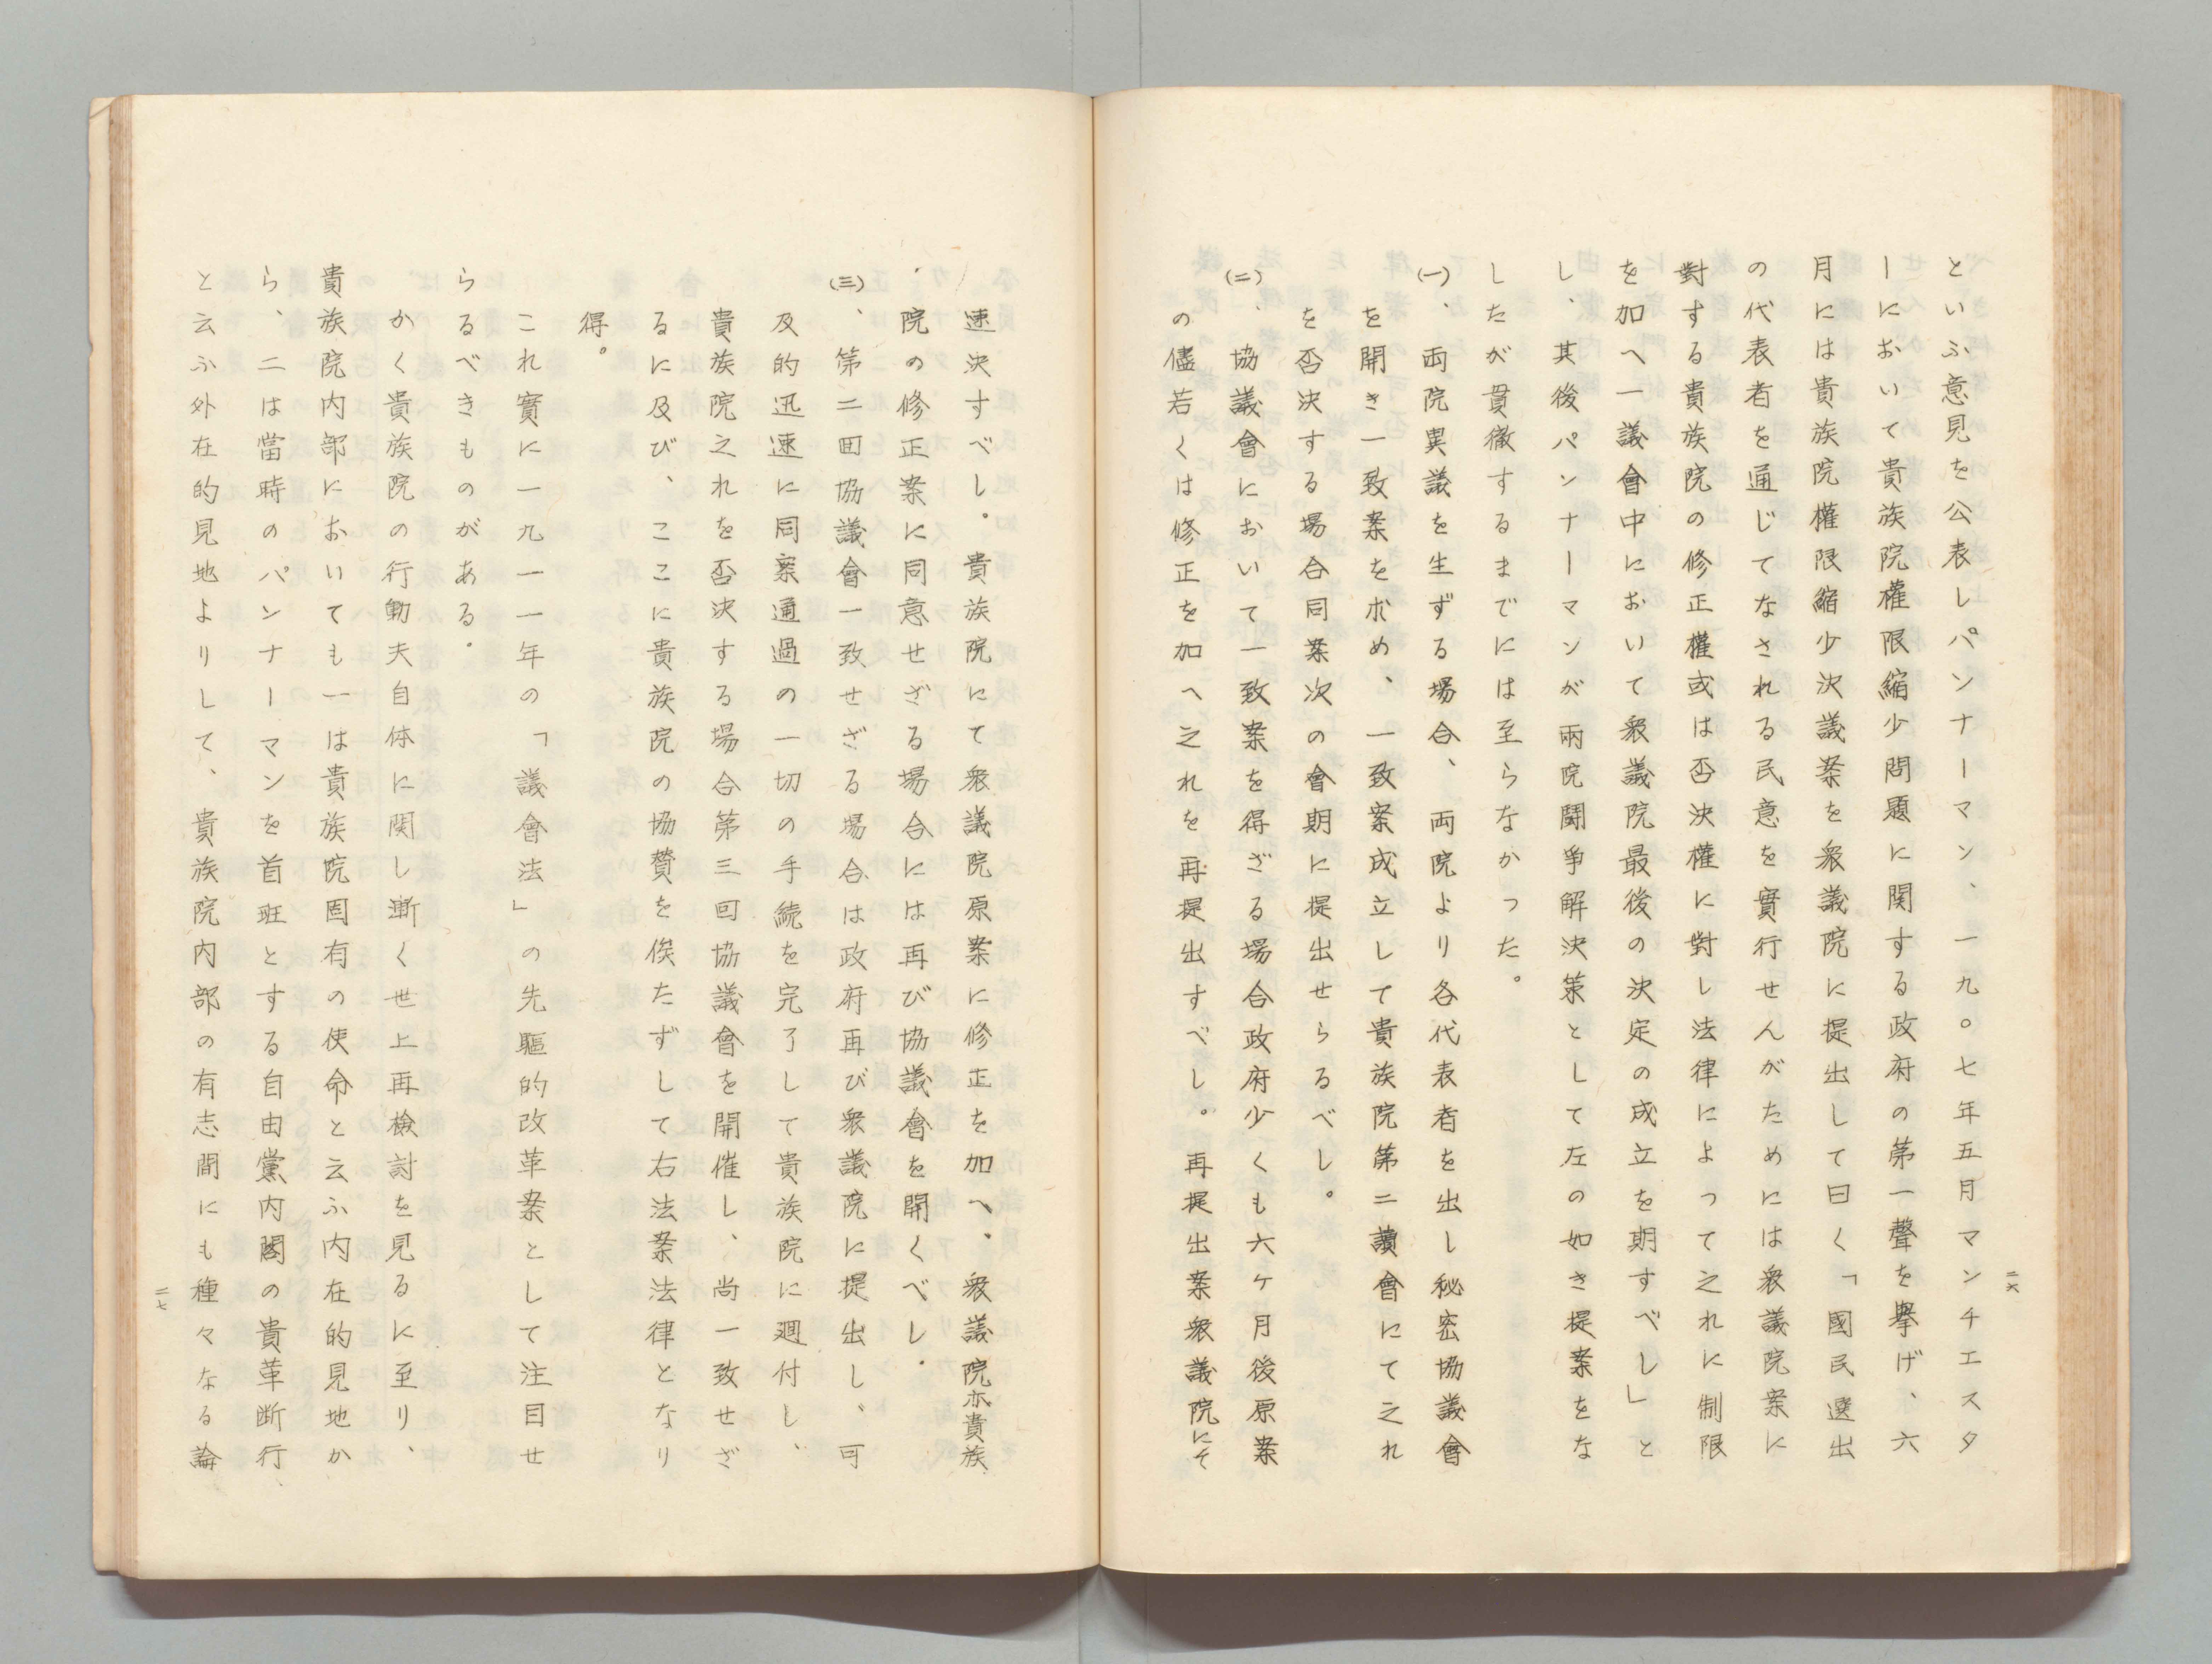 といふ意見を公表しパンナーマン、一九〇七年五月マンチエスタ
ーにおいて貴族院權限縮少問題に関する政府の第一聲を擧げ、六
月には貴族院權限縮少決議案を衆議院に提出して曰く「國民選出
の代表者を通じてなされる民意を實行せんがためには衆議院案に
對する貴族院の修正權或は否決權に對し法律によって之れに制限
を加へ一議會中において衆議院最後の決定の成立を期すべし」と
し、其後パンナーマンが兩院鬪爭解決策として左の如き提案をな
したが貫徹するまでには至らなかった。
(一)、両院異議を生ずる場合、両院より各代表者を出し秘密協議會
を開き一致案を求め、一致案成立して貴族院第二讀會にて之れ
を否決する場合同案次の會期に提出せらるべし。
(二)、協議會において一致案を得ざる場合政府少くも六ケ月後原案
の儘若くは修正を加へ之れを再提出すべし。再提出案衆議院にそ
二六
速決すべし。貴族院にて衆議院原案に修正を加へ、衆議院亦貴族
院の修正案に同意せざる場合には再び協議會を開くべし.
(三)、第二回協議會一致せざる場合は政府再び衆議院に提出し、可
及的迅速に同案通過の一切の手続を完了して貴族院に廻付し、
貴族院之れを否決する場合第三回協議會を開催し、尚一致せざ
るに及び、ここに貴族院の協賛を俟たずして右法案法律となり
得。
これ實に一九一一年の「議會法」の先驅的改革案として注目せ
らるべきものがある.
かく貴族院の行動夫自体に関し漸く世上再檢討を見るに至り、
貴族院内部においても一は貴族院固有の使命と云ふ内在的見地か
ら、二は當時のパンナーマンを首班とする自由黨内閣の貴革断行、
と云ふ外在的見地よりして、貴族院内部の有志間にも種々なる論
二七